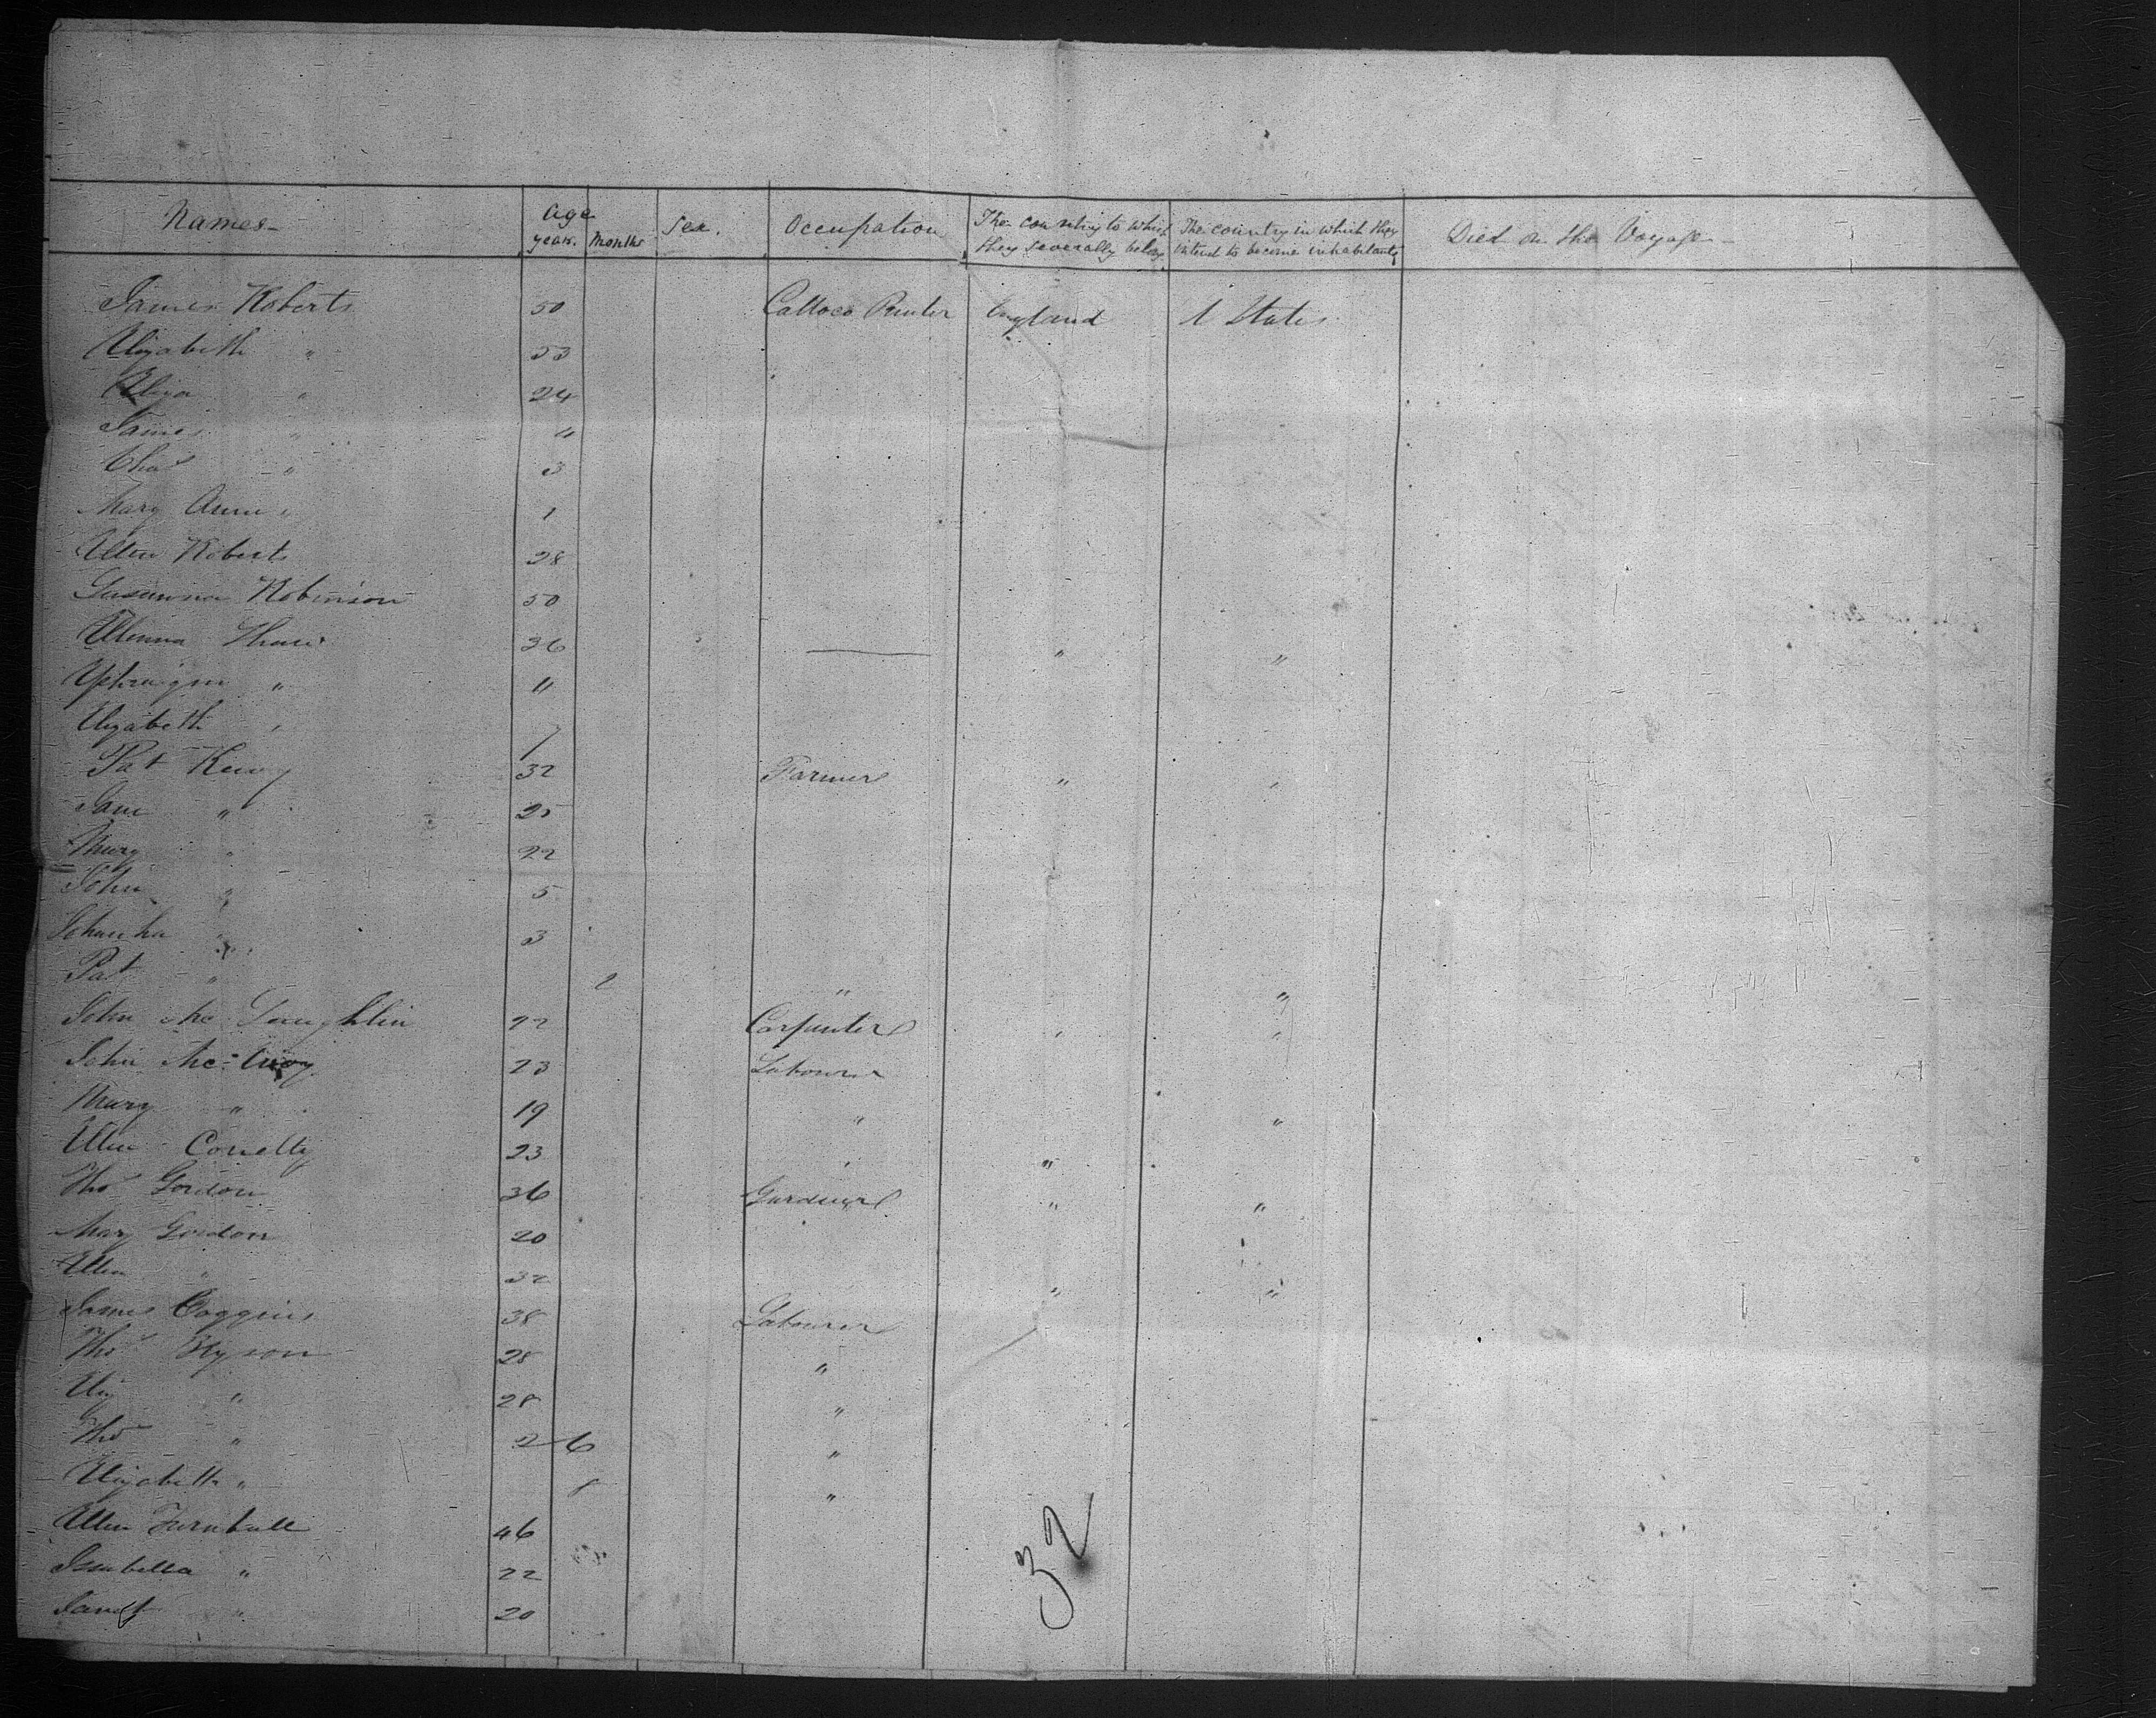 Names Age years. Months Sex. Occupation The country to which they severally belong The country in which they intend to become inhabitants Died on the Voyage
James Roberts 50 Callaco Printer England U States
Elizabeth " 53
Eliza " 24
James " "
Chas " 3
Mary Ann " 1
Ellen Roberts 28
Susanna Robinson 50
36 " "
" 11
Elizabeth " 7
Pat 32 Farmer " "
Jane " 25
Mary " 22
John " 5
Johanha " 3
Pat " 2 " "
John Mc Laughlin 22 Carpenter " "
John Mc Evoy 23 Labourer
Mary " 19 " "
Ellen Conelly 23 " "
Thos Gordon 36 Gardner " "
Mary Gordon 20
Ellen " 32 " "
James Coggins 38 Labourer
Thos 28 "
Eliz " 28 "
Thos " 2 6 "
Elizabeth " 8 "
Ellen Turnbull 46
Isabella " 22
Janet " 20
32